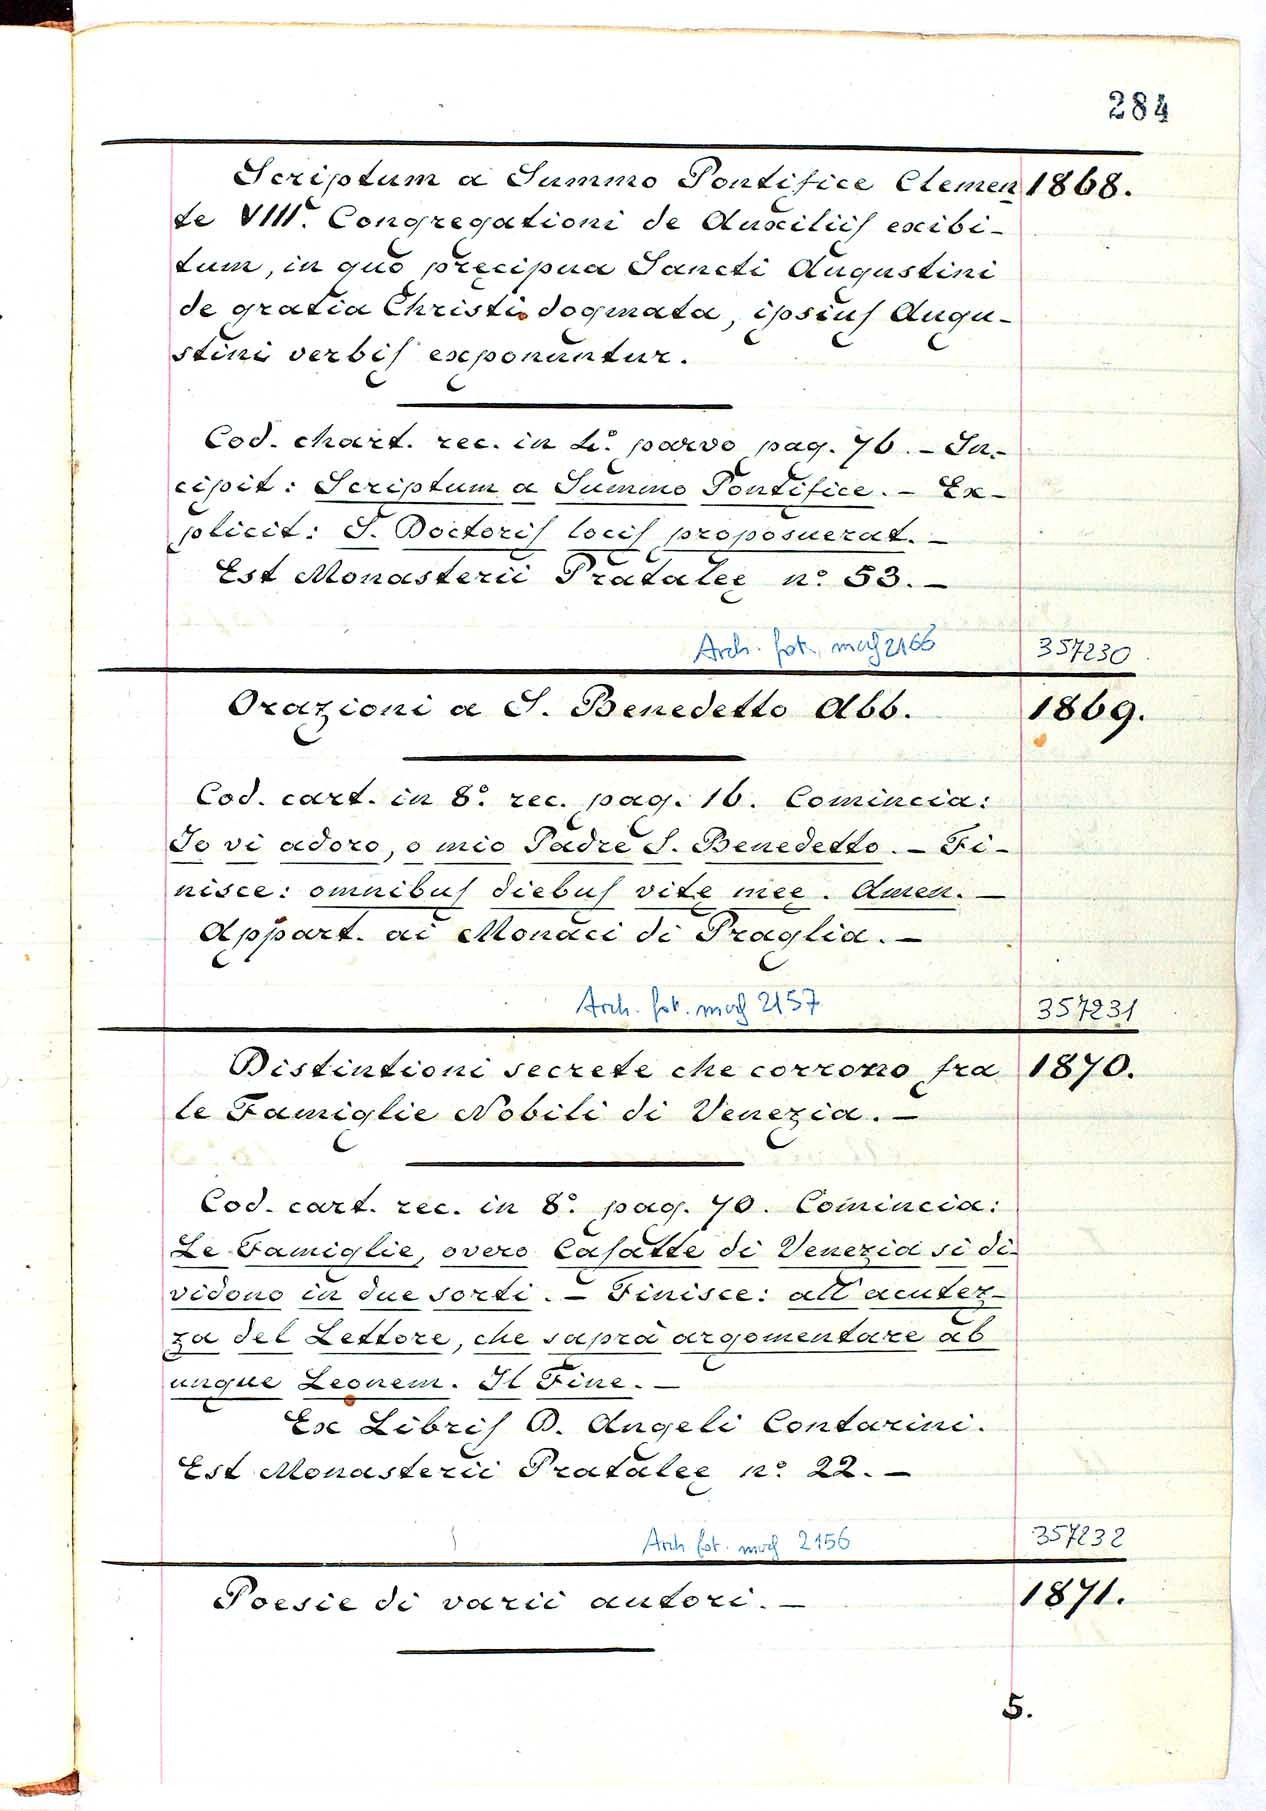 284
Scriptum a Summo Pontifice Clemen 1868.
te VIII. Congregationi de Auxiliis exibi-
tum, in quo pręcipua Sancti Augustini
de gratia Christi dogmata, ipsius Augu-
stini verbis exponuntur.
Cod. chart. rec. in 4º. parvo pag. 76. - In-
cipit: Scriptum a Summo Pontifice. - Ex-
plicit: S. Doctoris locis proposuerat. -
Est Monasterii Pratalęę nº. 53. -
Arch. fot. mcf 2166 357230
Orazioni a S. Benedetto Abb. 1869.
Cod. cart. in 8º. rec. pag. 16. Comincia:
Io vi adoro, o mio Padre S. Benedetto. - Fi-
nisce: omnibus diebus vitę meę. Amen. -
Appart. ai Monaci di Praglia. -
Arch. fot. mcf 2157 357231
Distintioni secrete che corrono fra 1870.
le Famiglie Nobili di Venezia. -
Cod. cart. rec. in 8º. pag. 70. Comincia:
Le Famiglie, overo Casatte di Venezia si di-
vidono in due sorti. - Finisce: all'acutez-
za del Lettore, che saprà argomentare ab
unque Leonem. Il Fine. -
Ex Libris D. Angeli Contarini.
Est Monasterii Pratalęę nº. 22. -
Arch fot. mcf 2156 357232
Poesie di varii autori. - 1871.
5.